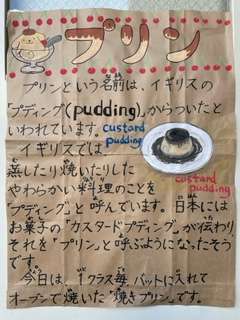 プリン
プリンという名前は、イギリスの
「プディング(pudding)」からついたと
いわれています。
custard
pudding
イギリスでは、
蒸したり焼いたりした
やわらかい料理のことを
custard
pudding
「プディング」と呼んでいます。日本には
お菓子の「カスタードプディング」が伝わり
それを「プリン」と呼ぶようになったそう
です。
今日は、1クラス毎、バットに入れて
オーブンで焼いた「焼きプリン」です。